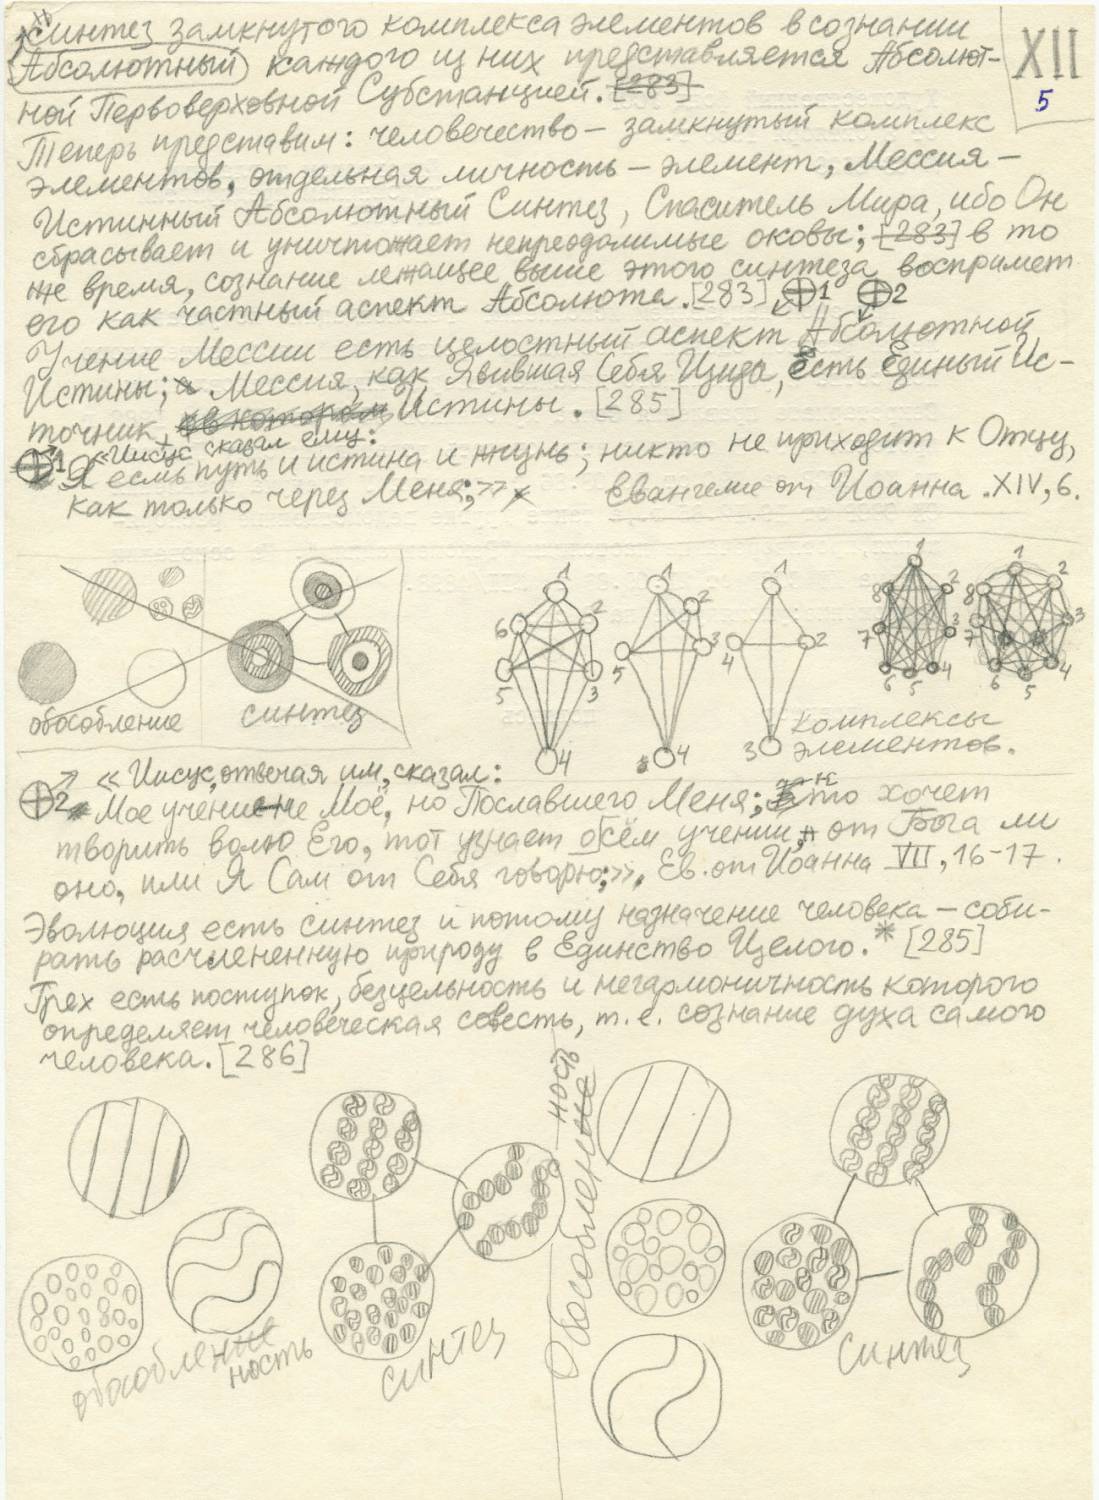 Синтез замкнутого комплекса элементов в сознании
(Абсолютный) каждого из них представляется Абсолют-
ной Первоверховной Субстанцией. [283]
XII
5
Теперь представим: человечество – замкнутый комплекс
элементов, отдельная личность – элемент, Мессия –
Истинный Абсолютный Синтез, Спаситель Мира, ибо Он
сбрасывает и уничтожает непреодолимые оковы; [283] в то
же время, сознание лежащее выше этого синтеза воспримет
его как частный аспект Абсолюта. [283] ⊕1 ⊕2
Учение Мессии есть целостный аспект Абсолютной
Истины; и Мессия, как Явившая Себя Изида, есть Единый Ис-
точник в котором Истины. [285]
⊕1 «Иисус сказал ему:
Я есмь путь и истина и жизнь; никто не приходит к Отцу,
как только через Меня;»
Евангелие от Иоанна. XIV, 6.
обособление
синтез
1 2 3 4 5 6
1 2 3 4 5
1 2 3 4
1 2 3 4 5 6 7 8
1 2 3 4 5 6 7 8
комплексы
элементов.
⊕2 «Иисус, отвечая им, сказал:
Мое учение не Моё, но Пославшего Меня; кто хочет
творить волю Его, тот узнает о сём учении, от Бога ли
оно, или Я Сам от Себя говорю;», Ев. от Иоанна VII, 16-17.
Эволюция есть синтез и потому назначение человека – соби-
рать расчлененную природу в Единство Целого.* [285]
Грех есть поступок, безцельность и негармоничность которого
определяет человеческая совесть, т.е. сознание духа самого
человека. [286]
обособление
ность
синтез
Обособление
ность
Синтез